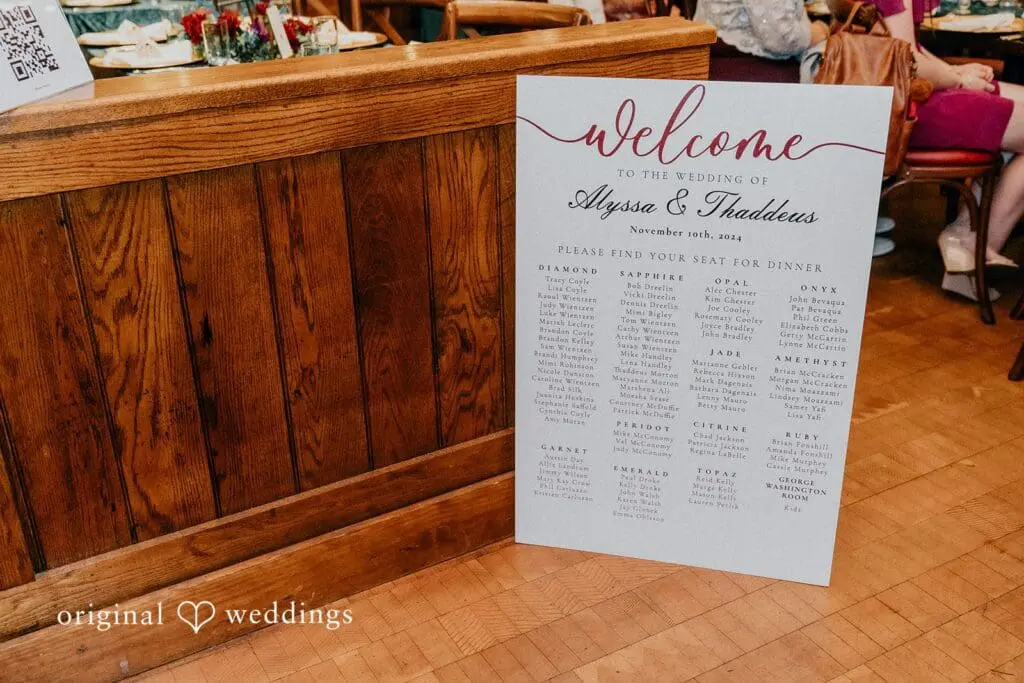 welcome
TO THE WEDDING OF
Alyssa & Thaddeus
November 10th, 2024
PLEASE FIND YOUR SEAT FOR DINNER
DIAMOND
Tracy Coyle
Lisa Coyle
Raoul Wientzen
Judy Wientzen
Luke Wientzen
Mariah Leclerc
Brandon Coyle
Brandon Kelley
Sam Wientzen
Brandi Humphrey
Mimi Robinson
Nicole Duncan
Caroline Wientzen
Brad Silk
Juanita Hoskins
Stephanie Saffold
Cynthia Coyle
Amy Moran
GARNET
Austin Day
Allie Landrum
Jimmy Wilson
Mary Kay Crow
Phil Carluzzo
Kristen Carluzzo
SAPPHIRE
Bob Dreelin
Vicki Dreelin
Dennis Dreelin
Mimi Bigley
Tom Wientzen
Cathy Wientzen
Arthur Wientzen
Susan Wientzen
Mike Handley
Lena Handley
Thaddeus Morton
Maryanne Morton
Marshena Ali
Moesha Sease
Courtney McDuffie
Patrick McDuffie
PERIDOT
Mike McConomy
Val McConomy
Judy McConomy
EMERALD
Paul Drake
Kelly Drake
John Walsh
Karen Walsh
Jay
Emma Ohlsson
OPAL
Alec Chester
Kim Chester
Joe Cooley
Rosemary Cooley
Joyce Bradley
John Bradley
JADE
Marianne Gebler
Rebecca Hixson
Mark Dagenais
Barbara Dagenais
Lenny Mauro
Betsy Mauro
CITRINE
Chad Jackson
Patricia Jackson
Regina LaBelle
TOPAZ
Reid Kelly
Margo Kelly
Mason Kelly
Lauren
ONYX
John Bevaqua
Pat Bevaqua
Phil Green
Elizabeth Cobbs
Gerry McCartin
Lynne McCartin
AMETHYST
Brian McCracken
Morgan McCracken
Nima Moazzami
Lindsey Moazzami
Samer Yafi
Lisa Yafi
RUBY
Brian Fonshill
Amanda Fonshill
Mike Murphey
Cassie Murphey
GEORGE
WASHINGTON
ROOM
Kids
original weddings